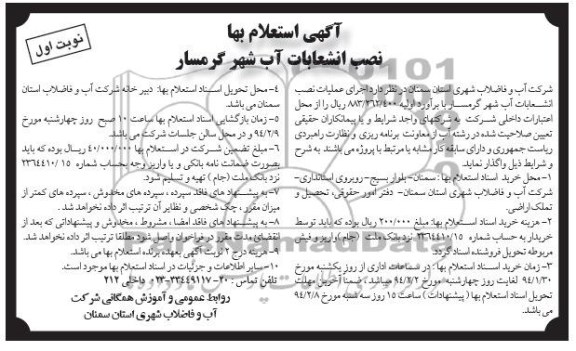 آگهی استعلام بها
نصب انشعابات آب شهر گرمسار
نوبت اول
شرکت آب و فاضلاب شهری استان سمنان در نظر دارد اجرای عملیات نصب
انشعابات آب شهر گرمسار با برآورد اولیه ۸۸۳/۲۶۲/۴۰۰ ریال را از محل
اعتبارات داخلی شرکت به شرکتهای واجد شرایط و یا پیمانکاران حقیقی
تعیین صلاحیت شده در رشته آب از معاونت برنامه ریزی و نظارت راهبردی
ریاست جمهوری و دارای سابقه کار مشابه یا مرتبط با پروژه می باشند به شرح
و شرایط ذیل واگذار نماید.
۱- محل خرید اسناد استعلام بها: سمنان- بلوار بسیج- روبروی استانداری-
شرکت آب و فاضلاب شهری استان سمنان- دفتر امور حقوقی، تحصیل و
تملک اراضی.
۲- هزینه خرید اسناد استعلام بها: مبلغ ۲۰۰/۰۰۰ ریال بوده که باید توسط
خریدار به حساب شماره ۲۳۶۴۴۱۰/۱۵ نزد بانک ملت (جام) واریز و فیش
مربوطه تحویل فروشنده اسناد گردد.
۳- زمان خرید اسناد استعلام بها: در ساعات اداری از روز یکشنبه مورخ
۹۴/۱/۳۰ لغایت روز چهارشنبه مورخ ۹۴/۲/۲ میباشد. ضمنا آخرین مهلت
تحویل اسناد استعلام بها (پیشنهادات) ساعت ۱۵ روز سه شنبه مورخ ۹۴/۲/۸
می باشد.
۴- محل تحویل اسناد استعلام بها: دبیر خانه شرکت آب و فاضلاب استان
سمنان می باشد.
۵- زمان بازگشایی اسناد استعلام بها ساعت ۱۰ صبح روز چهارشنبه مورخ
۹۴/۲/۹ و در محل سالن جلسات شرکت می باشد.
۶- مبلغ تضمین شرکت در استعلام بها ۴۰/۰۰۰/۰۰۰ ریال بوده که باید
بصورت ضمانت نامه بانکی و یا واریز وجه بحساب شماره ۲۳۶۴۴۱۰/۱۵
نزد بانک ملت (جام) تهیه و تسلیم شود.
۷- به پیشنهاد های فاقد سپرده، سپرده های مخدوش، سپرده های کمتر از
میزان مقرر، چک شخصی و نظایر آن ترتیب اثر داده نخواهد شد.
۸- به پیشنهاد های فاقد امضا، مشروط، مخدوش و پیشنهاداتی که بعد از
انقضای مدت مقرر در فراخوان واصل شود مطلقا ترتیب اثر داده نخواهد شد.
۹- هزینه درج ۲ نوبت آگهی بعهده برنده استعلام بها می باشد.
۱۰- سایر اطلاعات و جزئیات در اسناد استعلام بها موجود است.
تلفن تماس: ۲۰-۳۳۴۴۹۱۱۷-۰۲۳ داخلی ۲۱۲
روابط عمومی و آموزش همگانی شرکت
آب و فاضلاب شهری استان سمنان